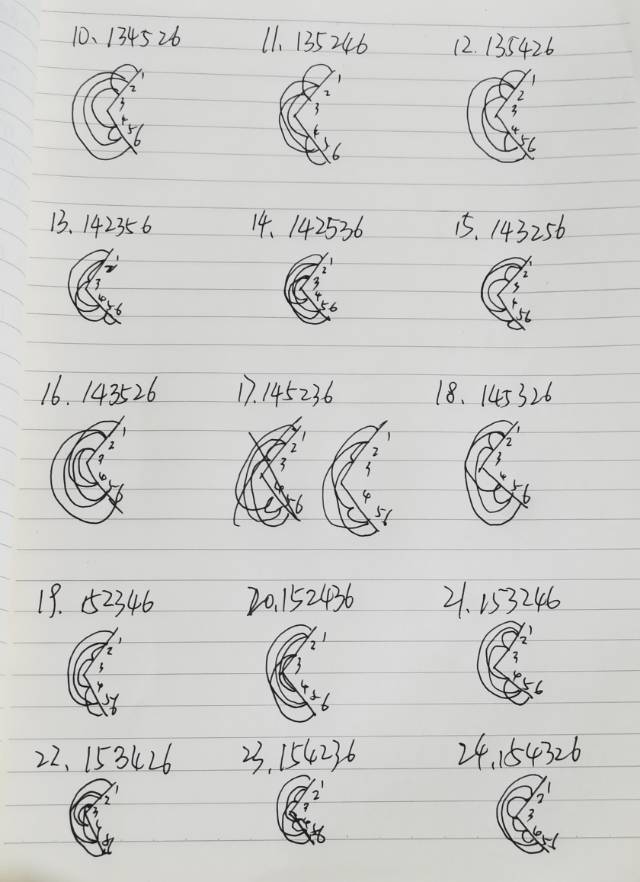 10、134526 11、135246 12、135426
1 2 3 4 5 6 1 2 3 4 5 6 1 2 3 4 5 6
13、142356 14、142536 15、143256
1 2 3 4 5 6 1 2 3 4 5 6 1 2 3 4 5 6
16、143526 17、145236 18、145326
1 2 3 4 5 6 1 2 3 4 5 6 1 2 3 4 5 6 1 2 3 4 5 6
19、152346 20、152436 21、153246
1 2 3 4 5 6 1 2 3 4 5 6 1 2 3 4 5 6
22、153426 23、154236 24、154326
1 2 3 1 2 1 2 3 4 5 6